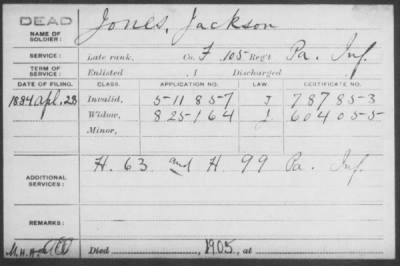 DEAD
NAME OF SOLDIER: Jones, Jackson
SERVICE: Late rank, Co. F, 105 Reg't Pa. Inf.
TERM OF SERVICE: Enlisted , 1 Discharged
DATE OF FILING. CLASS. APPLICATION NO. LAW. CERTIFICATE NO.
1884 Apl. 23 Invalid, 511857 J 787853
Widow, 825164 604055
Minor,
ADDITIONAL SERVICES: H. 63 and H. 99 Pa. Inf.
REMARKS:
Died 1905, at